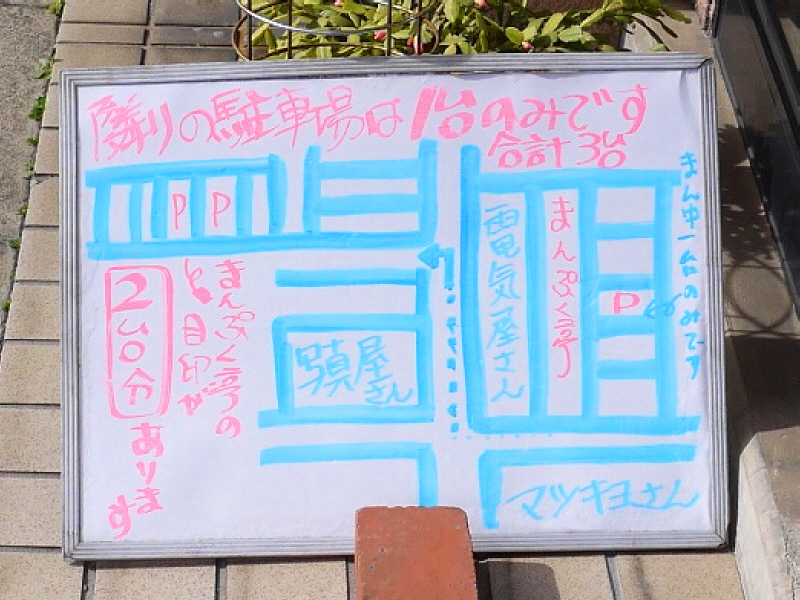 隣りの駐車場は1台のみです
合計3台
P P
2台分
あります
まんぷく亭の
と目印が
写真屋さん
電気屋さん
まんぷく亭
P
まん中一台のみです
マツキヨさん